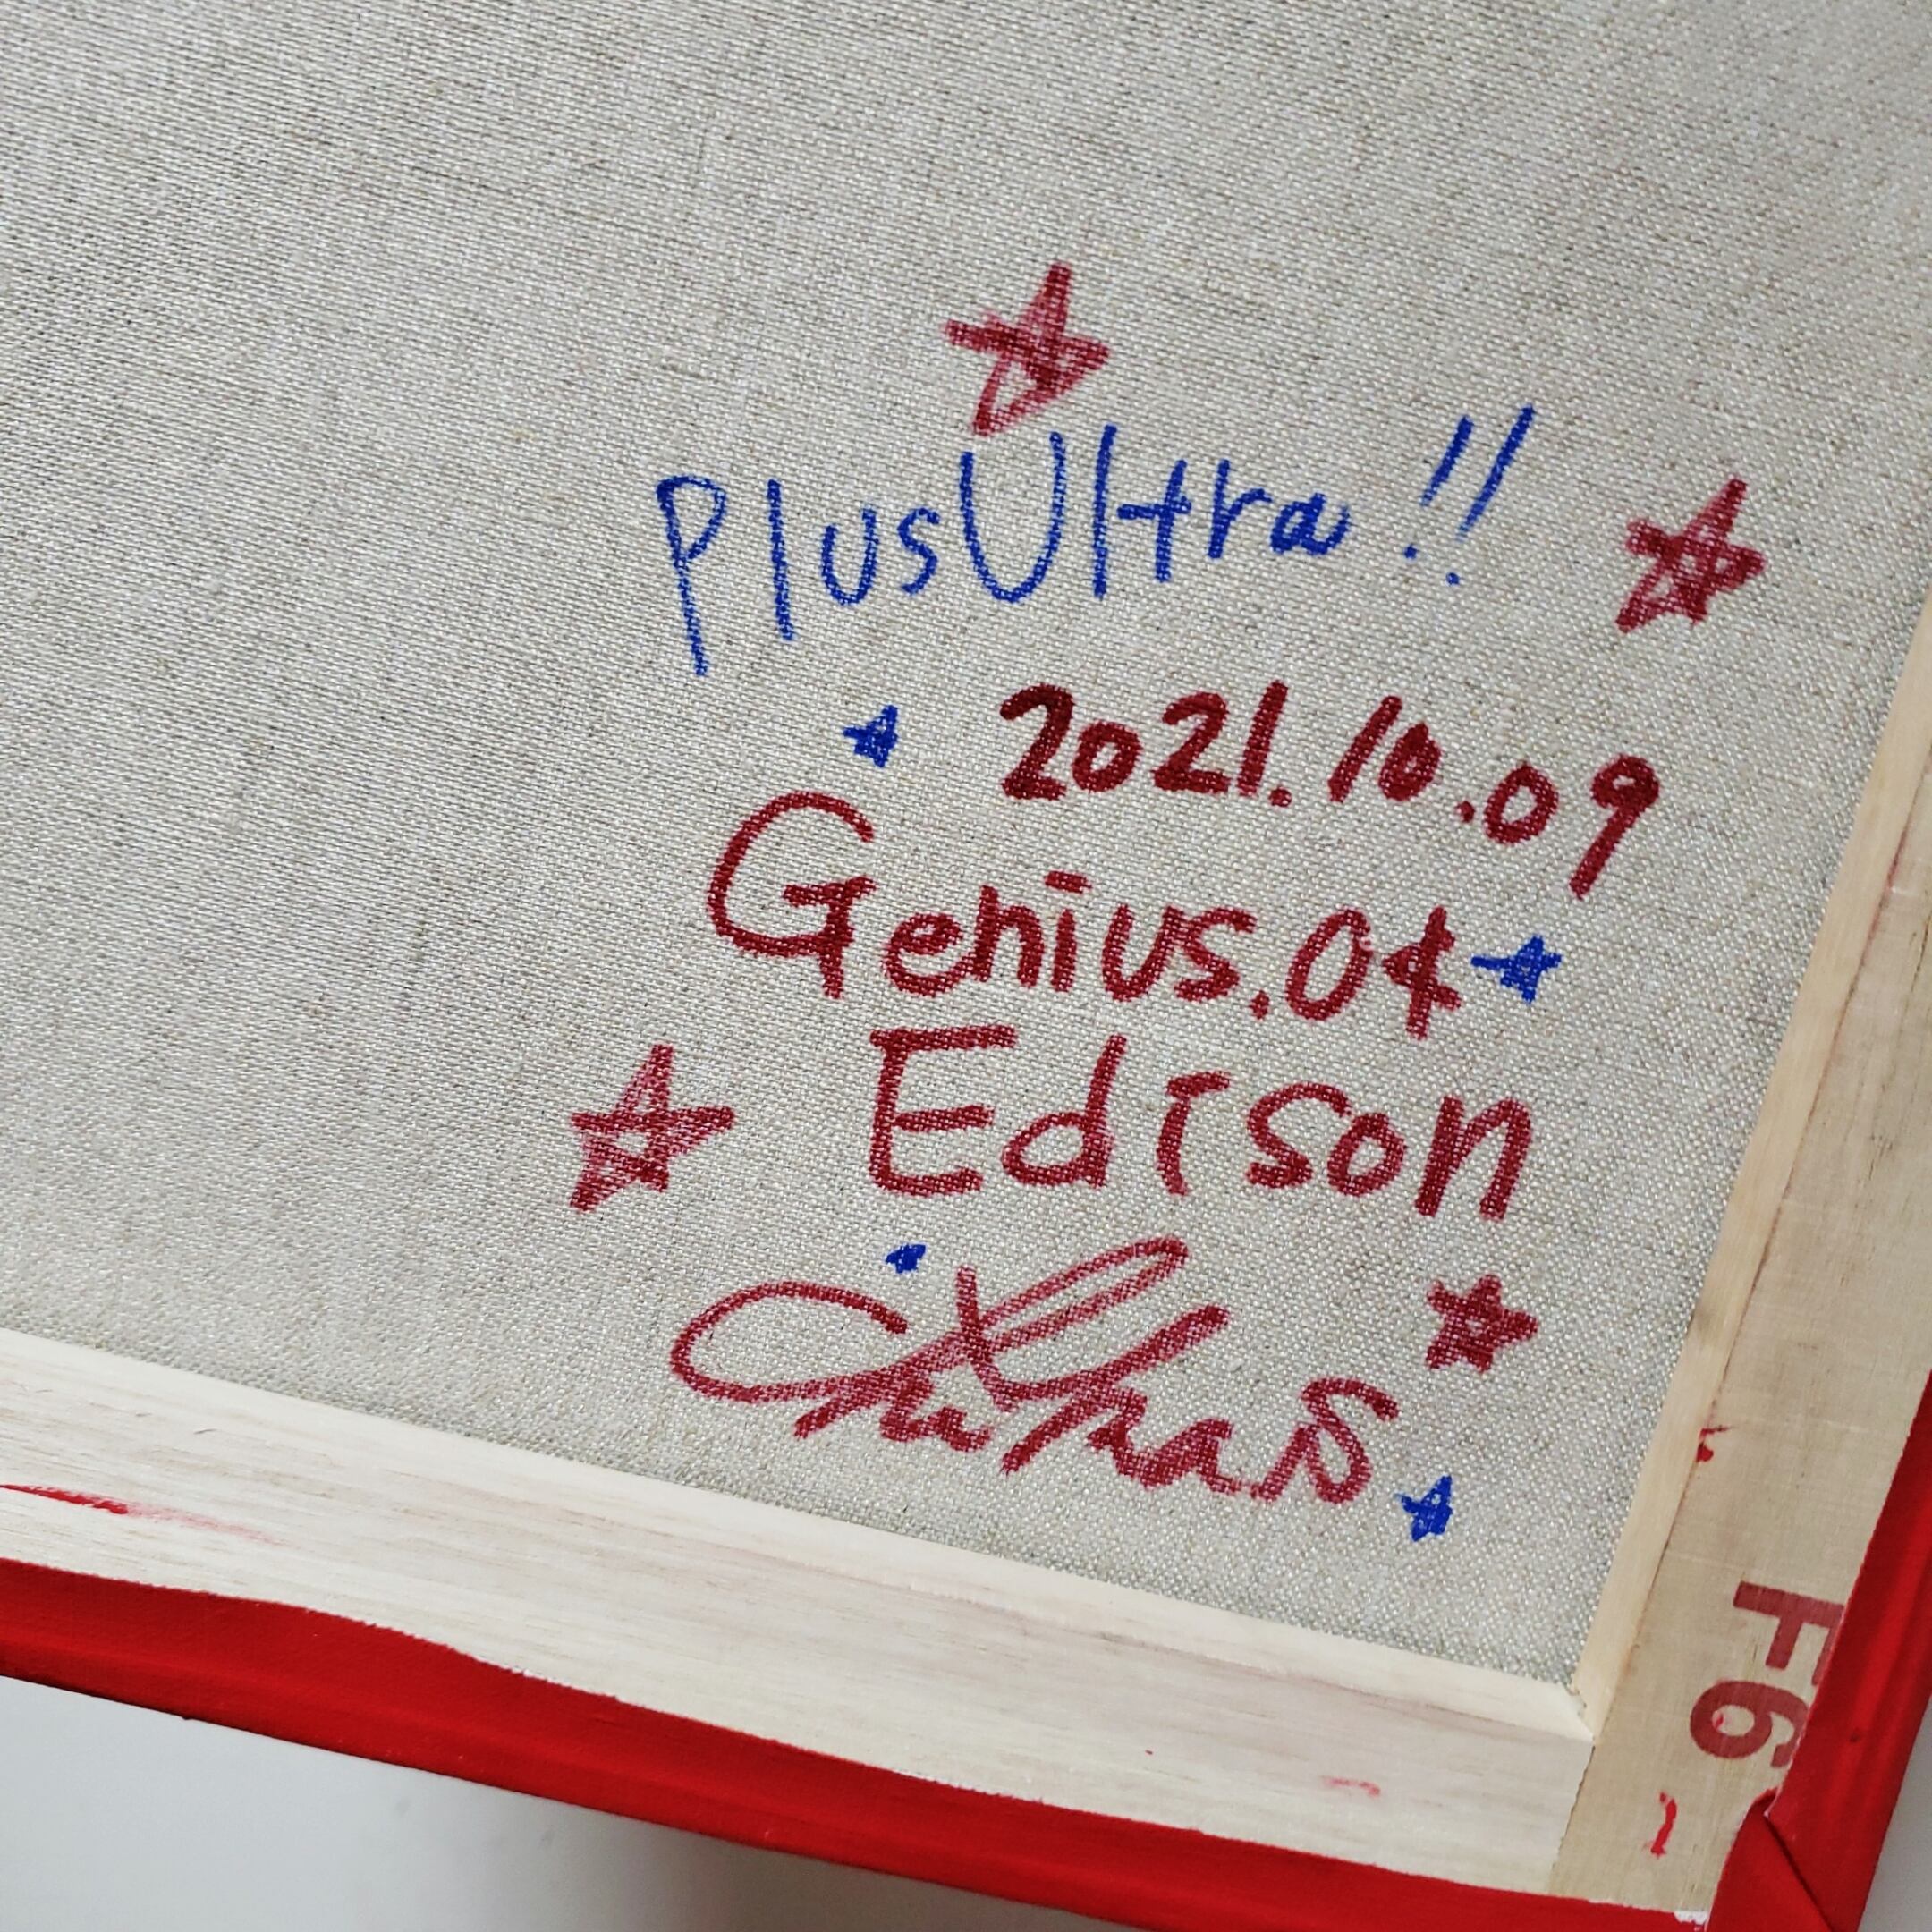 PlusUltra!!
2021.10.09
Genius.04
Edison
F6